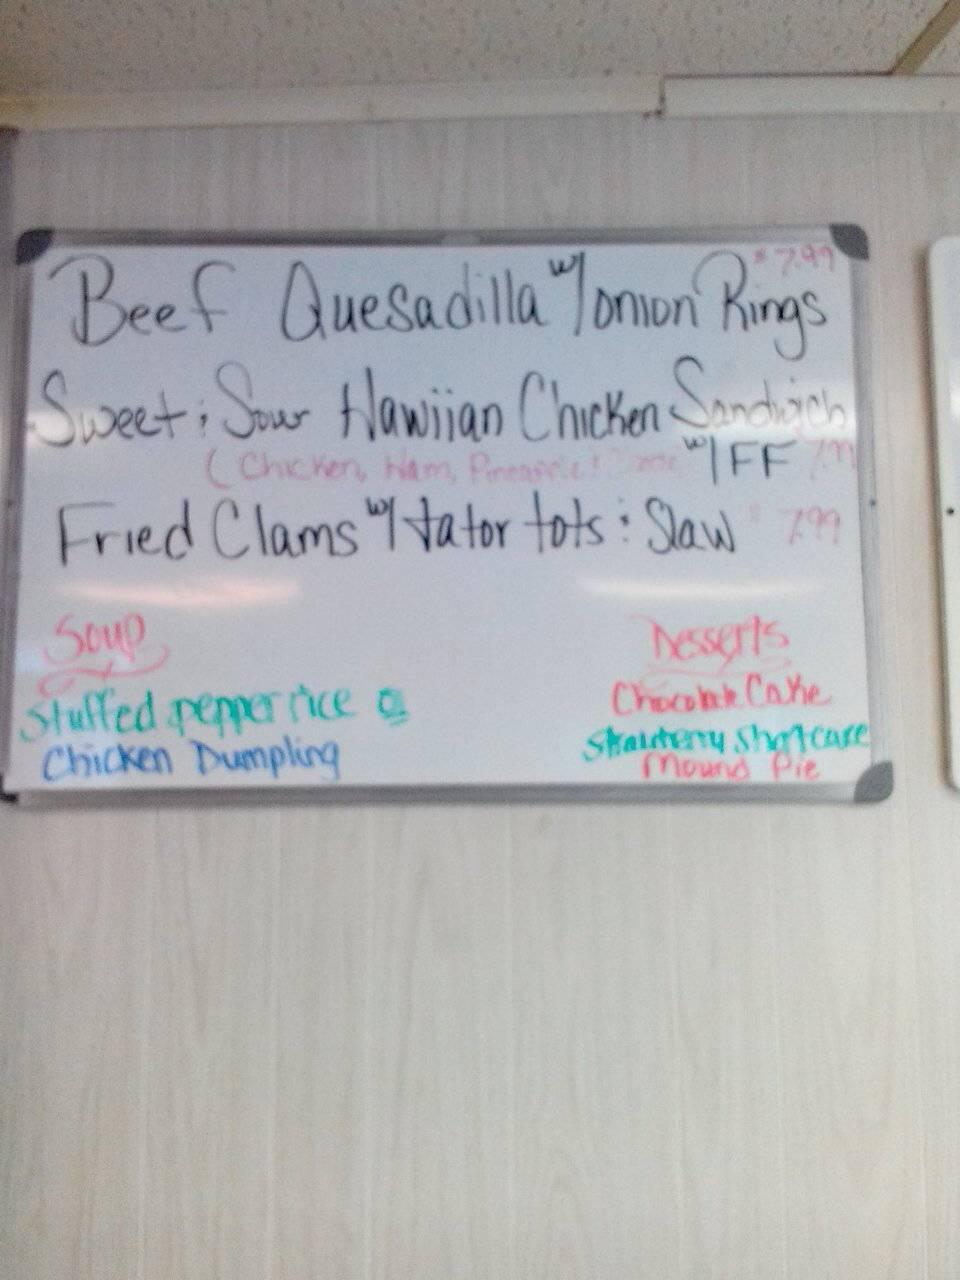 $7.99
Beef Quesadilla w/ onion Rings
Sweet & Sour Hawiian Chicken Sandwich
(Chicken, Ham, Pineapple w/ FF
Fried Clams w/ tator tots & Slaw $7.99
Soup
Stuffed pepper rice
Chicken Dumpling
Desserts
Chocolate Cake
Strawberry Shortcake
Mound Pie